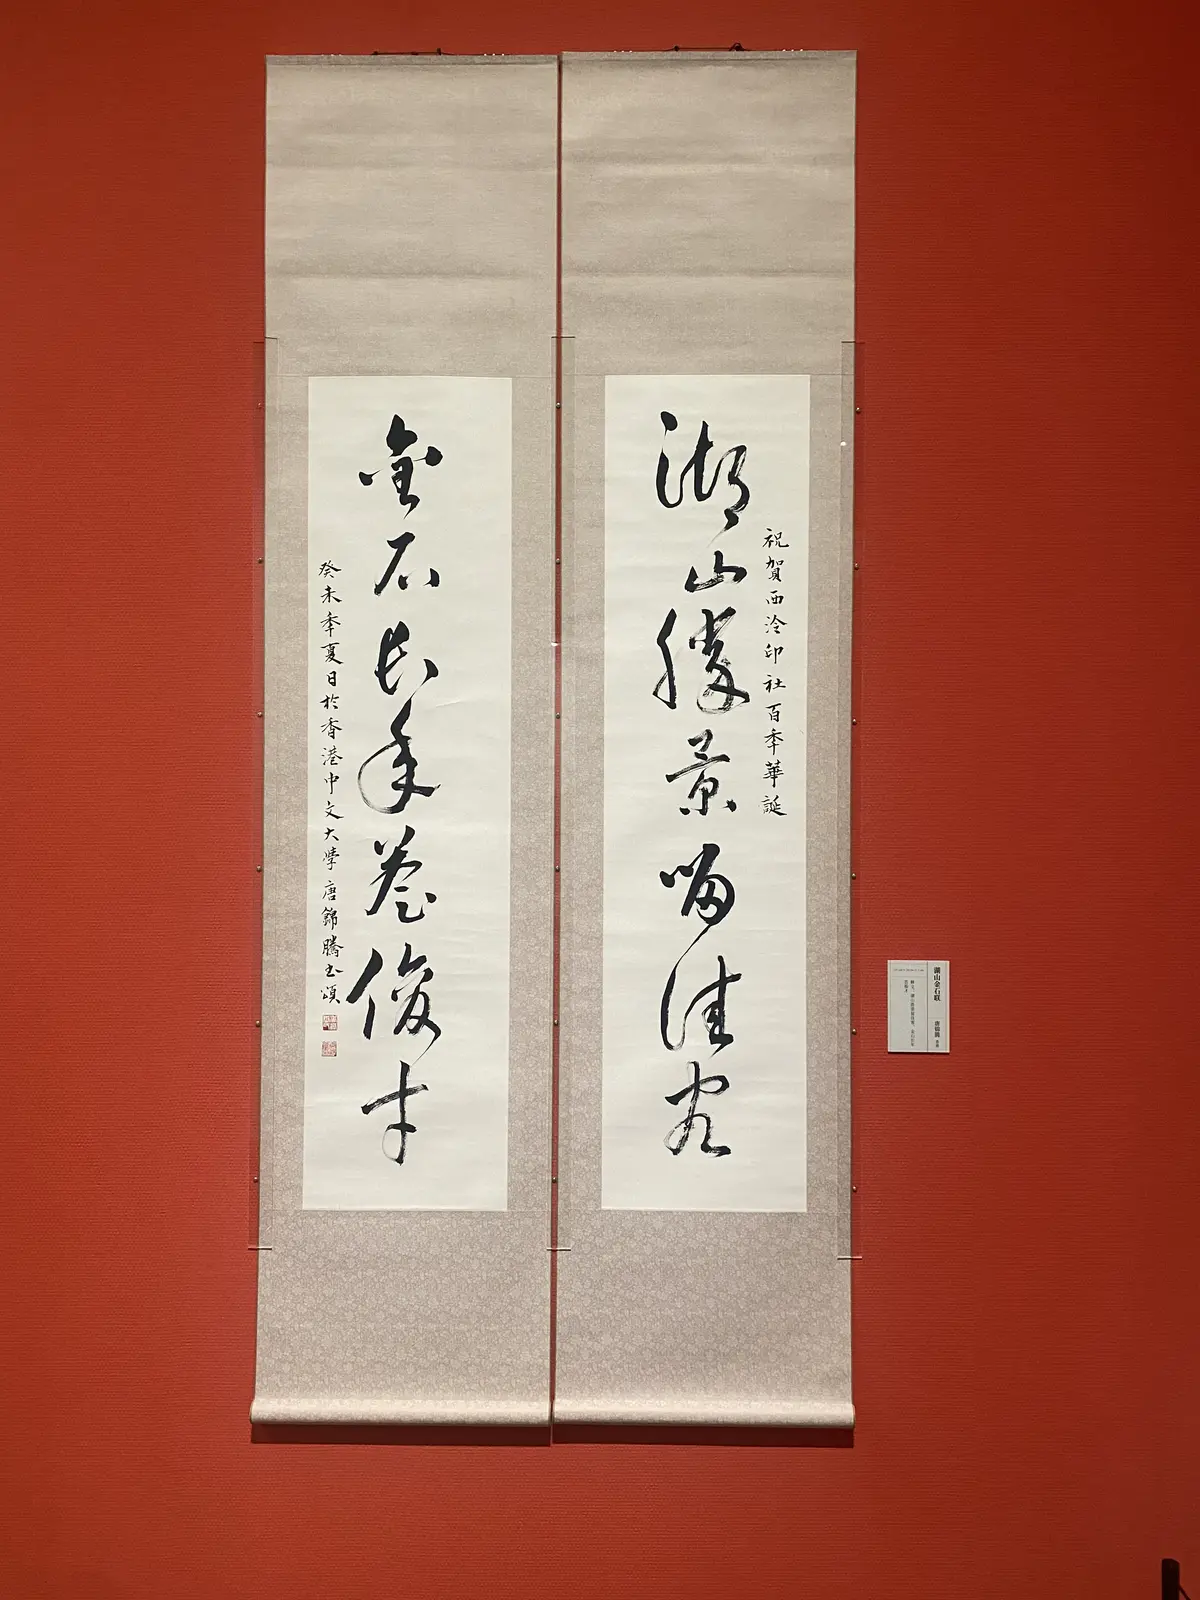 祝賀西泠印社百年華誕
湖山勝景留佳客
金石長年養俊才
癸未年夏日於香港中文大學唐錦騰书頌
湖山金石联
唐锦腾